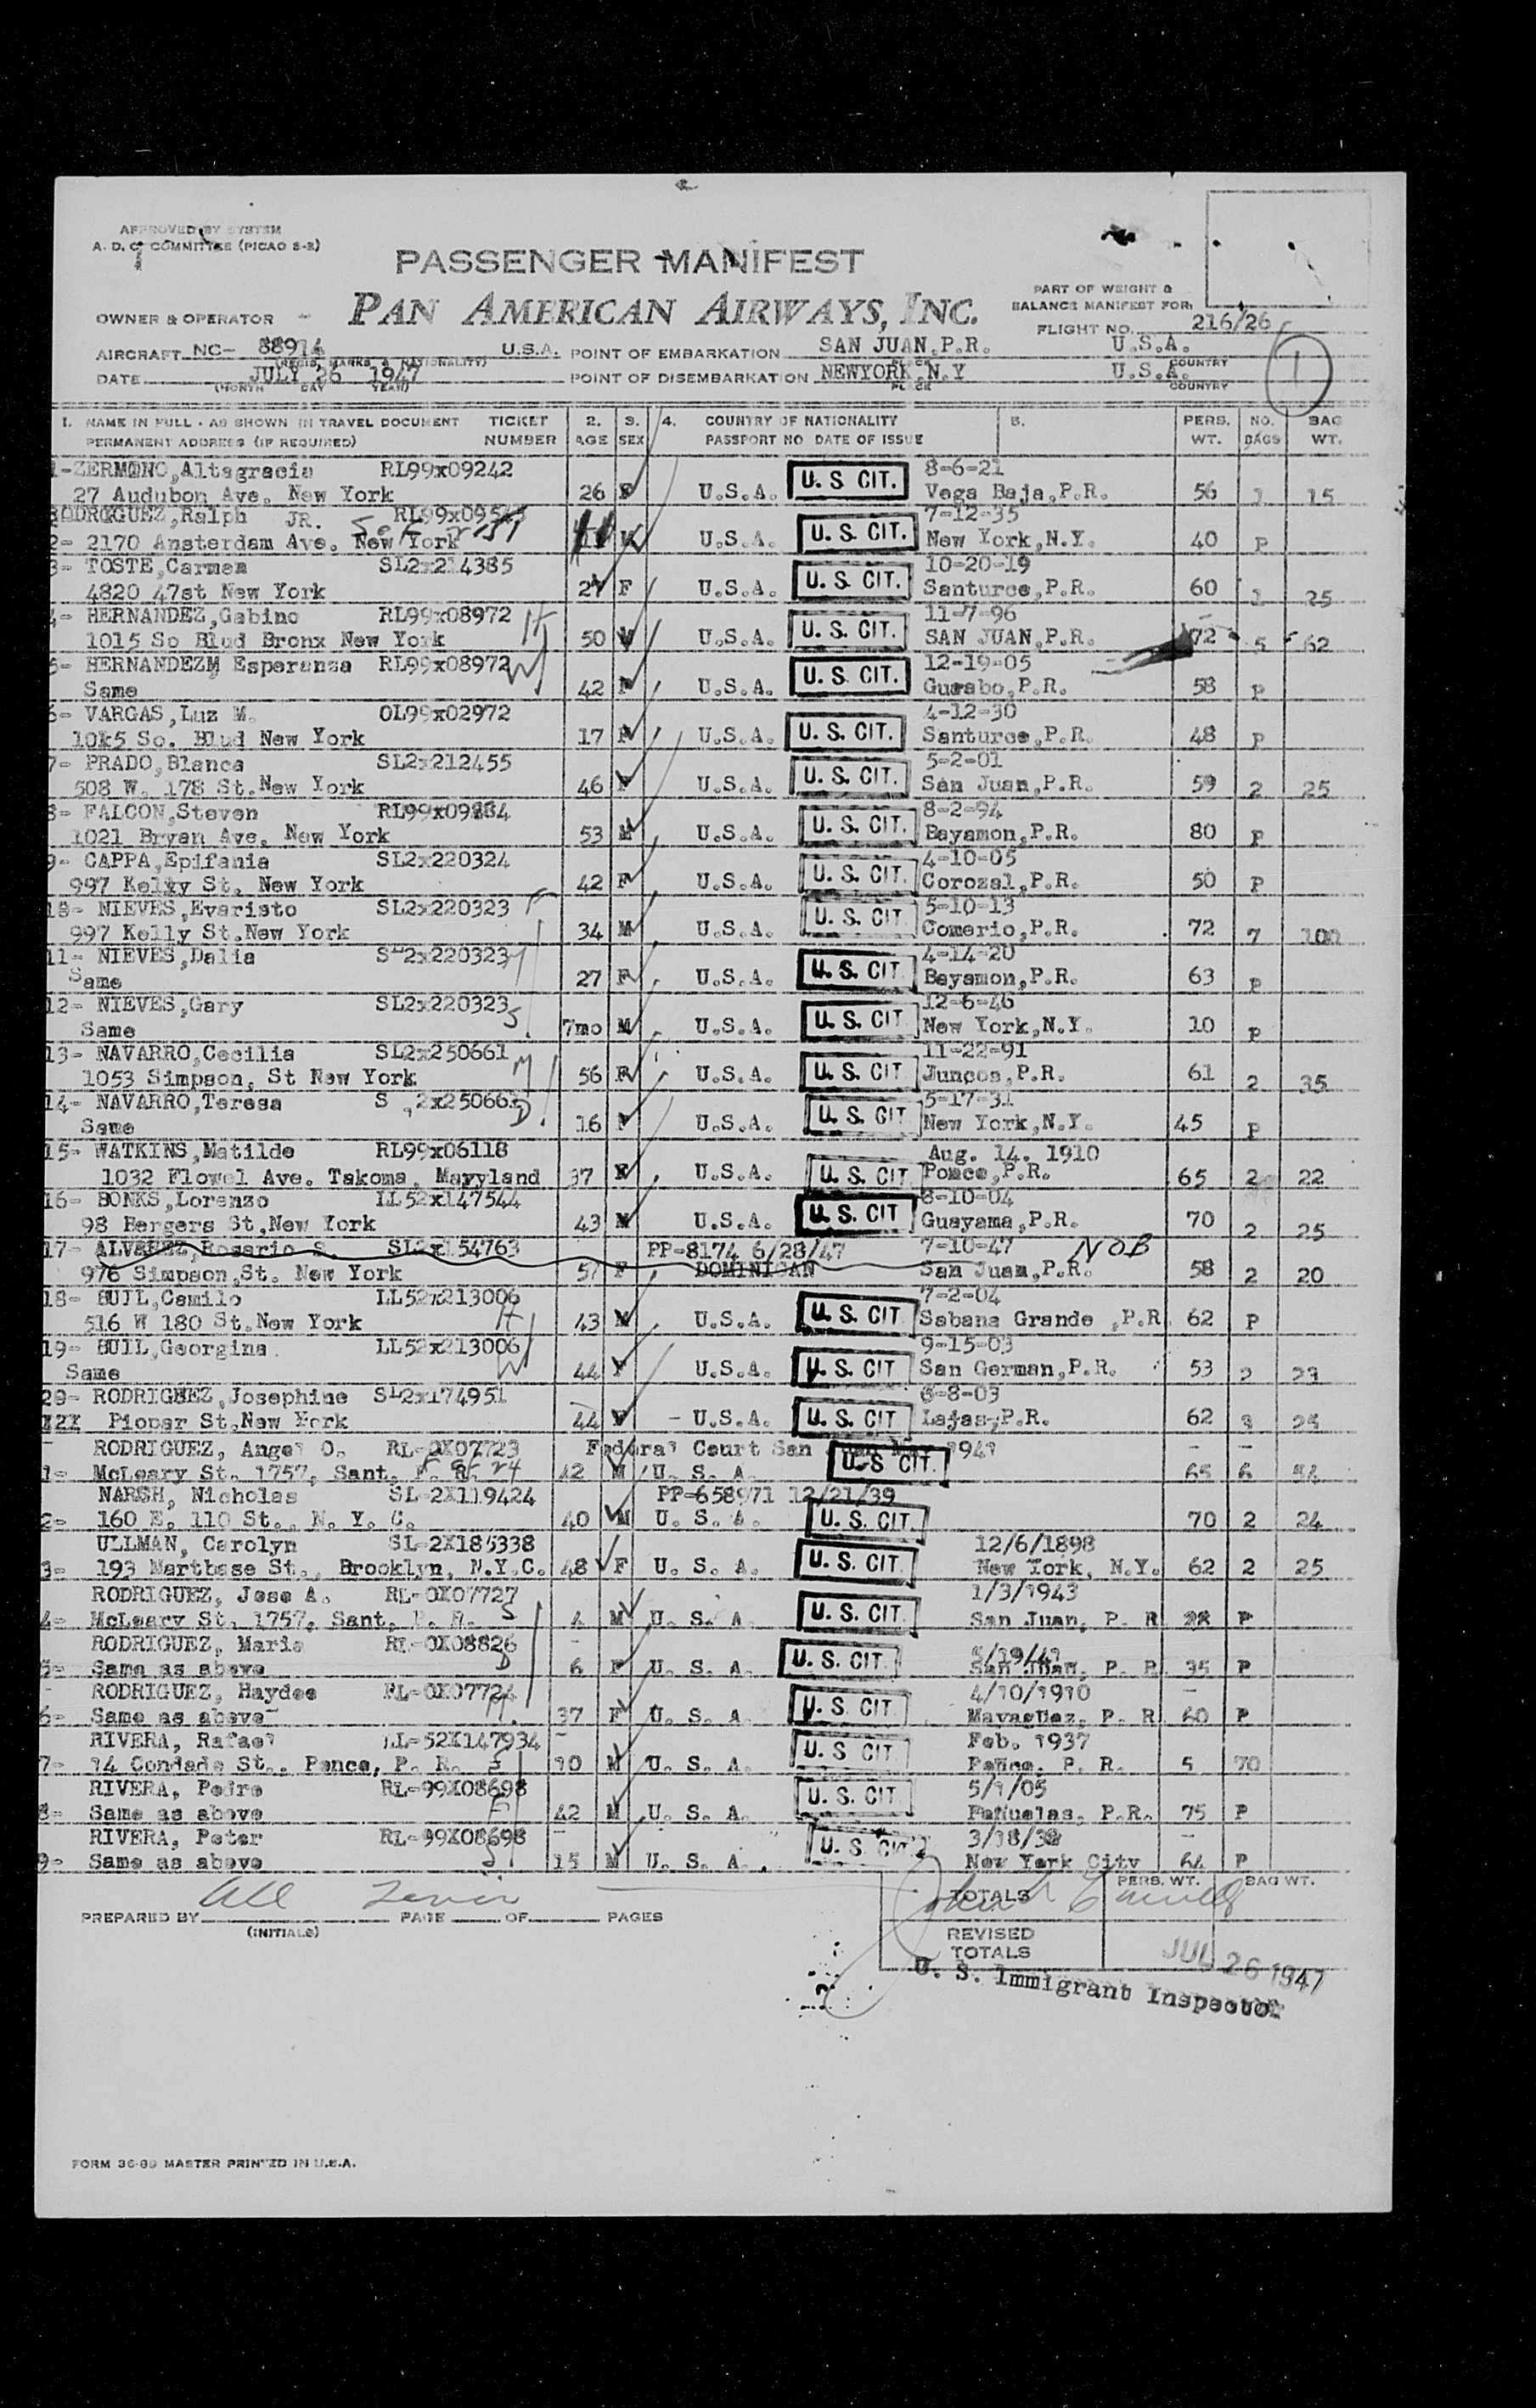 APPROVED BY SYSTEM
A. D. C. COMMITTEE (PICAO S-2)
PASSENGER MANIFEST
PAN AMERICAN AIRWAYS, INC.
PART OF WEIGHT &
BALANCE MANIFEST FOR:
OWNER & OPERATOR
FLIGHT NO. 216/26
AIRCRAFT NC- 88914 U.S.A. POINT OF EMBARKATION SAN JUAN,P.R. U.S.A.
(REGIS. MARKS & NATIONALITY) PLACE COUNTRY
DATE JULY 26 1947 POINT OF DISEMBARKATION NEWYORK N.Y U.S.A. 1
(MONTH DAY YEAR) PLACE COUNTRY
1. NAME IN FULL - AS SHOWN IN TRAVEL DOCUMENT TICKET 2. 3. 4. COUNTRY OF NATIONALITY 5. PERS. NO. BAG
PERMANENT ADDRESS (IF REQUIRED) NUMBER AGE SEX PASSPORT NO DATE OF ISSUE WT. BAGS WT.
1-ZERMENO,Altagracia RL99x09242 8-6-21
27 Audubon Ave. New York 26 F U.S.A. U. S CIT. Vega Baja,P.R. 56 1 15
RODRGUEZ,Ralph JR. 7-12-35
2- 2170 Amsterdam Ave. New York 11 M U.S.A. U. S. CIT. New York,N.Y. 40 P
3- TOSTE,Carmen SL2x214385 10-20-19
4820 47st New York 27 F U.S.A. U. S. CIT. Santurce,P.R. 60 1 25
4- HERNANDEZ,Gabino RL99x08972 H 11-7-96
1015 So Blud Bronx New York 50 M U.S.A. U. S. CIT. SAN JUAN,P.R. 72 5 62
5- HERNANDEZM Esperanza RL99x08972 W 12-19-05
Same 42 F U.S.A. U. S. CIT. Gurabo,P.R. 58 P
6- VARGAS,Luz M. OL99x02972 4-12-30
10k5 So. Blud New York 17 F U.S.A. U. S. CIT. Santurce,P.R. 48 P
7- PRADO,Blanca SL2x212455 5-2-01
508 W. 178 St.New York 46 F U.S.A. U. S. CIT. San Juan,P.R. 59 2 25
8- FALCON,Steven RL99x09884 8-2-94
1021 Bryan Ave. New York 53 M U.S.A. U. S. CIT. Bayamon,P.R. 80 P
9- CAPPA,Epifania SL2x220324 4-10-05
997 Kelly St. New York 42 F U.S.A. U. S. CIT. Corozal,P.R. 50 P
10- NIEVES,Evaristo SL2x220323 5-10-13
997 Kelly St.New York 34 M U.S.A. U. S. CIT Comerio,P.R. 72 7 100
11- NIEVES,Dalia SL2x220323 4-14-20
Same 27 F U.S.A. U. S. CIT Bayamon,P.R. 63 P
12- NIEVES,Gary SL2x220323 S 12-6-46
Same 7mo M U.S.A. U. S. CIT New York,N.Y. 10 P
13- NAVARRO,Cecilia SL2x250661 M 11-22-91
1053 Simpson, St New York 56 F U.S.A. U. S. CIT Juncos,P.R. 61 2 35
14- NAVARRO,Teresa D 5-17-31
Same 16 F U.S.A. U. S. CIT New York,N.Y. 45 P
15- WATKINS,Matilde RL99x06118 Aug. 14. 1910
1032 Flowel Ave. Takoma, Mayyland 37 F U.S.A. U. S. CIT Ponce,P.R. 65 2 22
16- BONKS,Lorenzo LL52x147544 8-10-04
98 Bergers St,New York 43 M U.S.A. U. S. CIT Guayama,P.R. 70 2 25
17- ALVAREZ,Rosario S. SL2x154763 PP-8174 6/28/47 7-10-47 NOB
976 Simpson,St. New York 57 F DOMINICAN San Juan,P.R. 58 2 20
18- BUIL,Camilo LL52x213006 H 7-2-04
516 W 180 St.New York 43 M U.S.A. U. S. CIT Sabana Grande ,P.R 62 P
19- BUIL,Georgina LL52x213006 W 9-15-03
Same 44 F U.S.A. U. S. CIT San German,P.R. 53 2 23
20- RODRIGUEZ,Josephine SL2x174951 8-8-03
Pioner St,New York 44 F - U.S.A. U. S. CIT Lajas,P.R. 62 3 25
RODRIGUEZ, Angel O. RL-0X07723 Federal Court San Juan May 1941
1- McLeary St. 1757, Sant. P. R. 42 M U. S. A. U. S CIT. 65 6 54
NARSH, Nicholas SL-2X119424 PP-658971 12/21/39
2- 160 E. 110 St., N. Y. C. 40 M U. S. A. U. S. CIT. 70 2 24
ULLMAN, Carolyn SL-2X185338 12/6/1898
3- 193 Martbase St., Brooklyn, N.Y.C. 48 F U. S. A. U. S. CIT New York, N.Y. 62 2 25
RODRIGUEZ, Jose A. RL-0X07727 S 1/3/1943
4- McLeary St. 1757, Sant. P. R. 4 M U. S. A. U. S. CIT. San Juan, P. R P
RODRIGUEZ, Maria RL-0X08826 D 5/19/41
5- Same as above 6 F U. S. A. U. S. CIT. San Juan, P. R 35 P
RODRIGUEZ, Haydee RL-0X07724 4/10/1910
6- Same as above 37 F U. S. A. U. S. CIT Mayaguez, P. R 60 P
RIVERA, Rafael LL-52X147934 Feb. 1937
7- 14 Condade St., Ponce, P. R. 10 M U. S. A. U. S CIT Ponce, P. R. 5 70
RIVERA, Pedro RL-99X08698 5/1/05
8- Same as above F 42 M U. S. A. U. S. CIT Peñuelas, P.R. 75 P
RIVERA, Peter RL-99X08698 3/18/32
9- Same as above S 15 M U. S. A. U. S. CIT New York City 64 P
PREPARED BY PAGE OF PAGES
(INITIALS)
TOTALS PERS. WT. BAG WT.
REVISED
TOTALS
JUL 26 1947
U. S. Immigrant Inspector
FORM 36-89 MASTER PRINTED IN U.S.A.